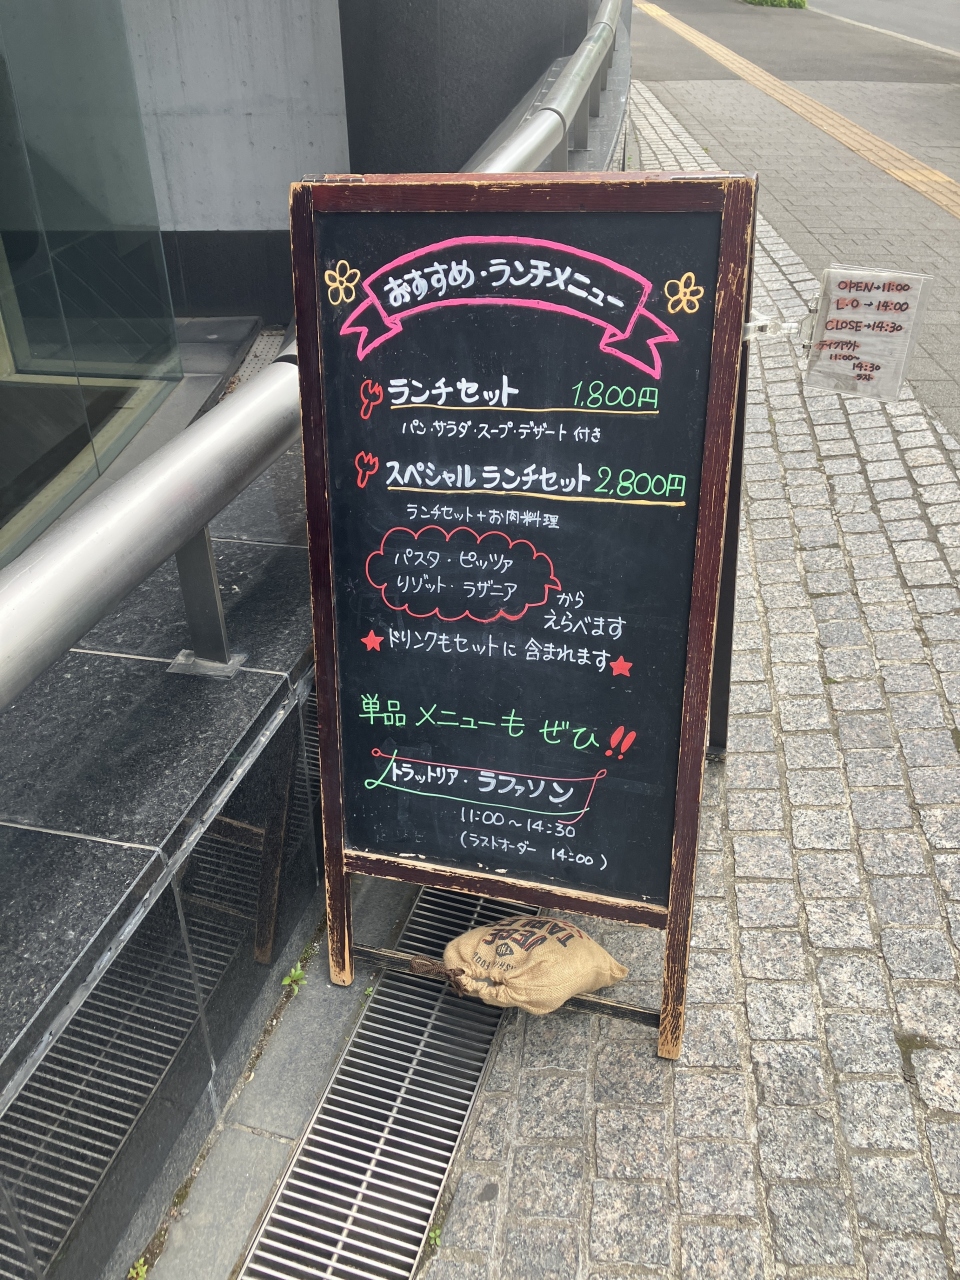 おすすめ・ランチメニュー
ランチセット 1,800円
パン・サラダ・スープ・デザート 付き
スペシャル ランチセット 2,800円
ランチセット+お肉料理
パスタ・ピッツァ
リゾット・ラザニア
から
えらべます
★ドリンクもセットに含まれます★
単品 メニューも ぜひ!!
トラットリア・ラファソン
11:00〜14:30
(ラストオーダー 14:00)
OPEN→11:00
L・O→14:00
CLOSE→14:30
テイクアウト
11:00〜
14:30
ラスト
THE